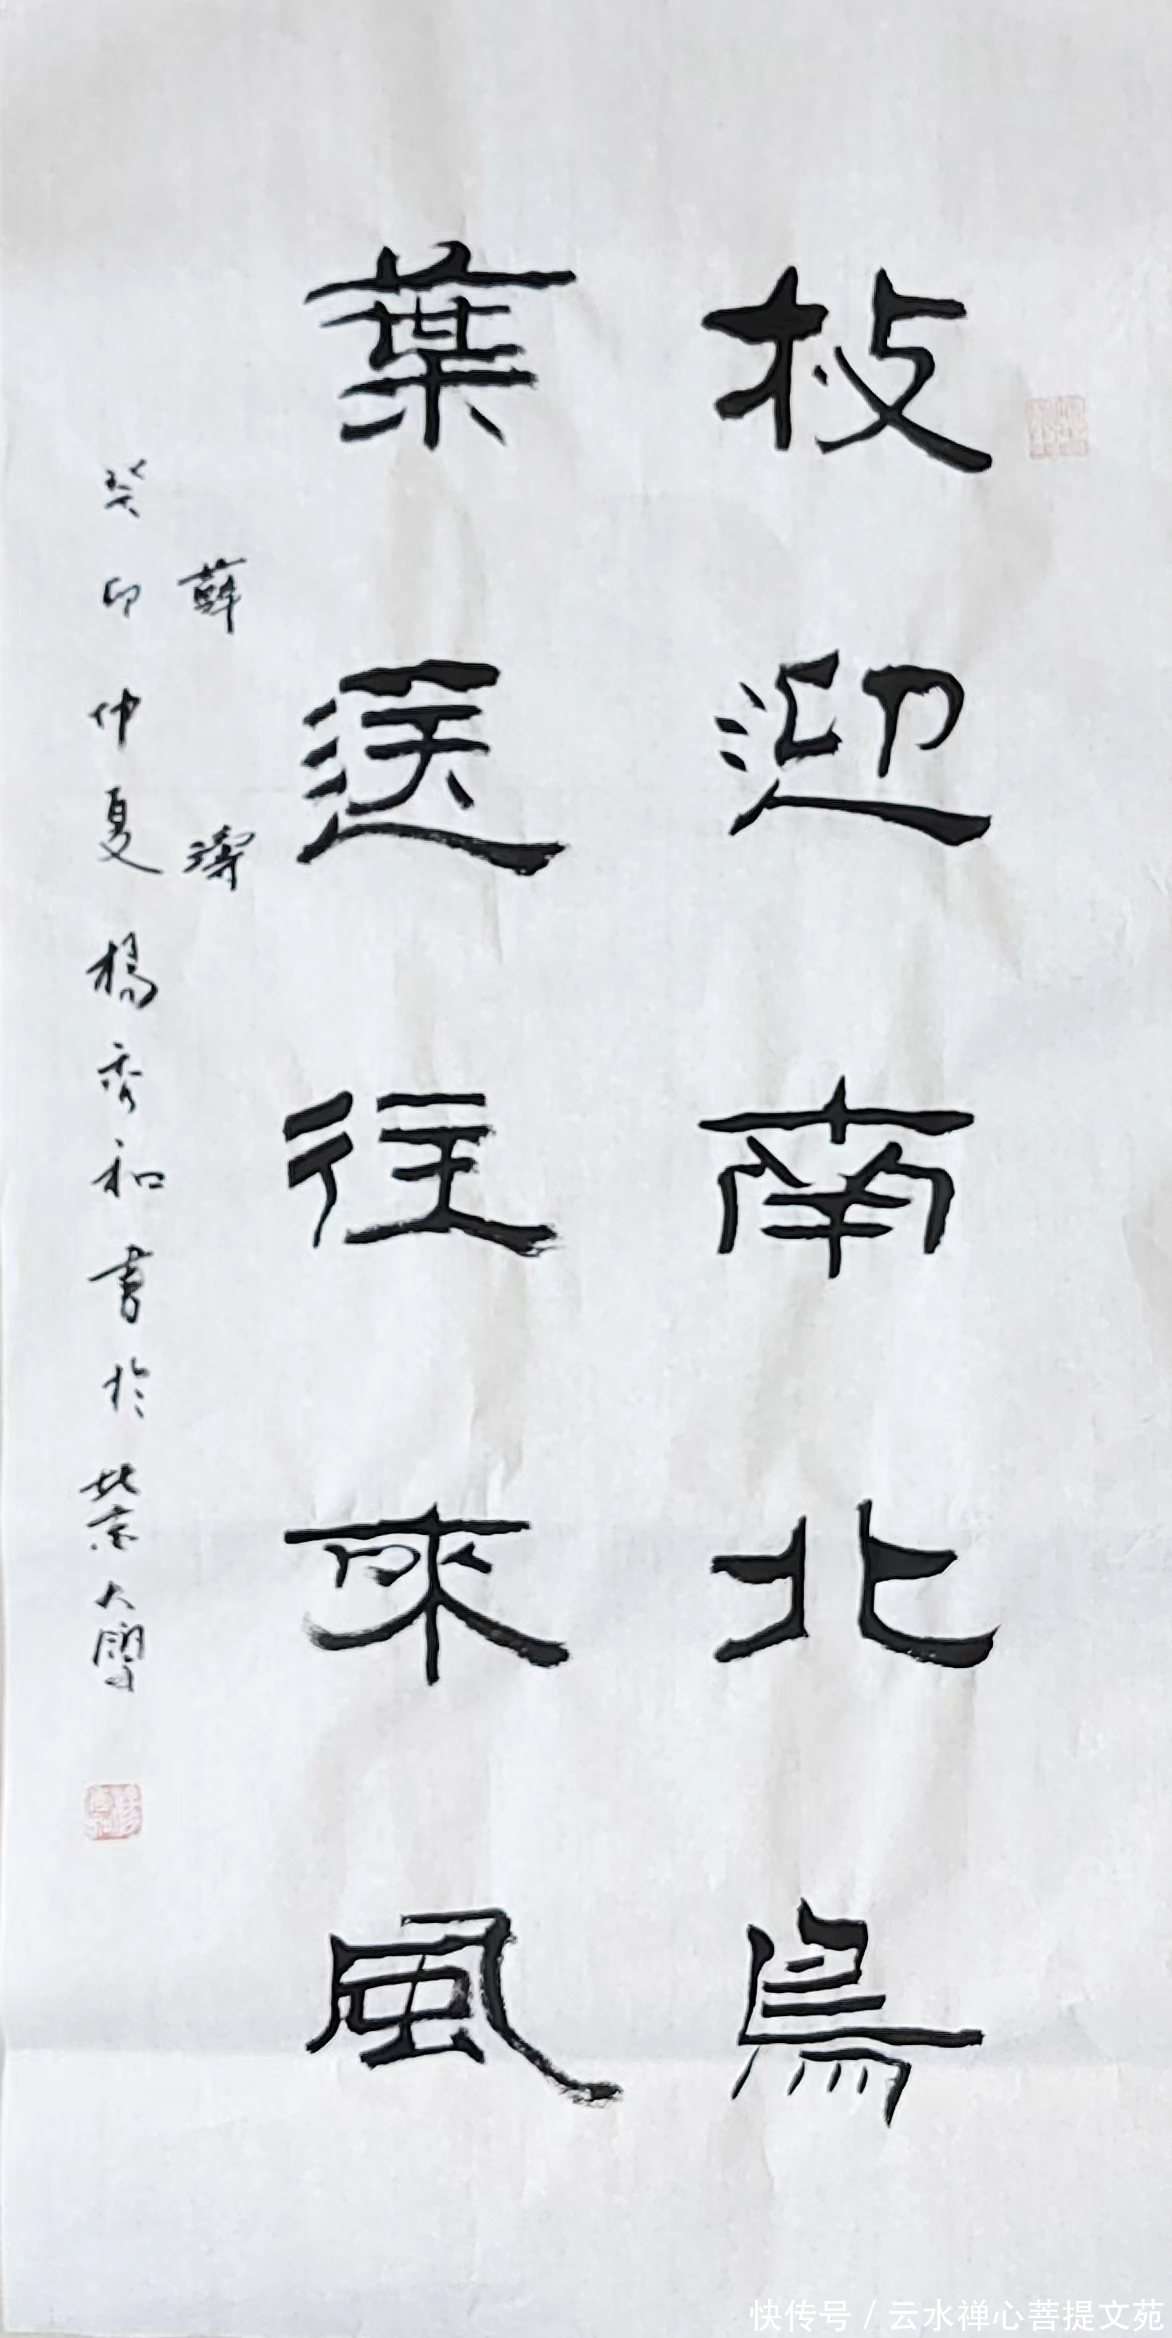 枝迎南北鳥
葉送往來風
薛濤
癸卯仲夏楊秀和書於北京大學
快传号 / 云水禅心菩提文苑